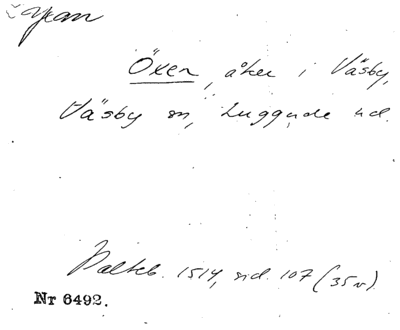 Öxen, åker i Väsby,
Väsby sn, Luggude hd.
1514, sid. 107 (35v).
Nr 6492.